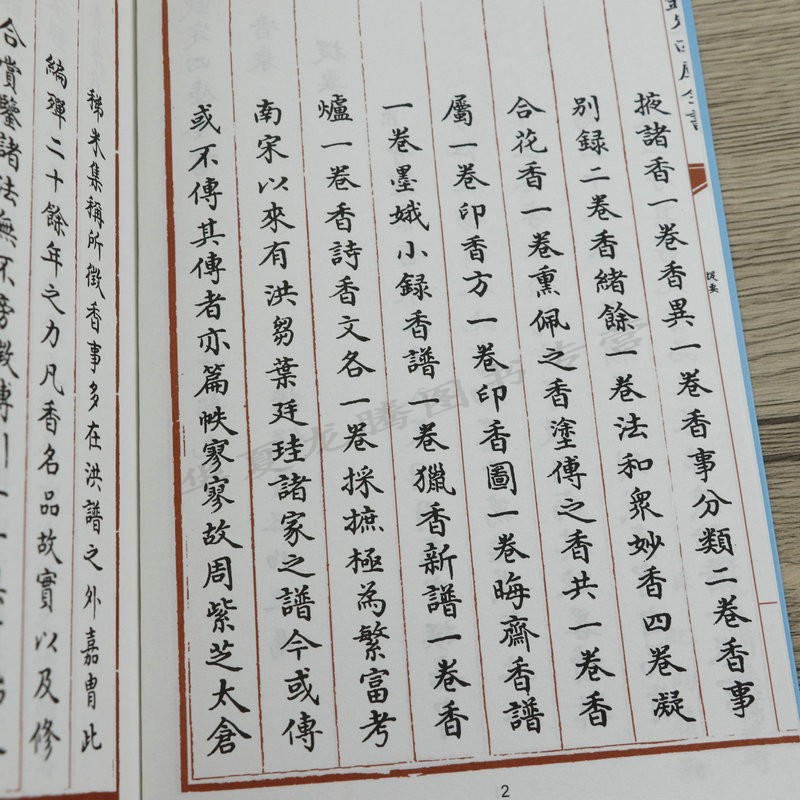 欽定四庫全書
提要
掖諸香一卷香異一卷香事分類二卷香事
別録二卷香緒餘一卷法和衆妙香四卷凝
合花香一卷熏佩之香塗傅之香共一卷香
屬一卷印香方一卷印香圖一卷晦齋香譜
一卷墨娥小録香譜一卷獵香新譜一卷香
爐一卷香詩香文各一卷採摭極為繁富考
南宋以來有洪芻葉廷珪諸家之譜今或傳
或不傳其傳者亦篇帙寥寥故周紫芝太倉
2
稊米集稱所徵香事多在洪譜之外嘉胄此
編殫二十餘年之力凡香名品故實以及修
合賞鑒諸法無不旁徵
華夏龙腾图书专营